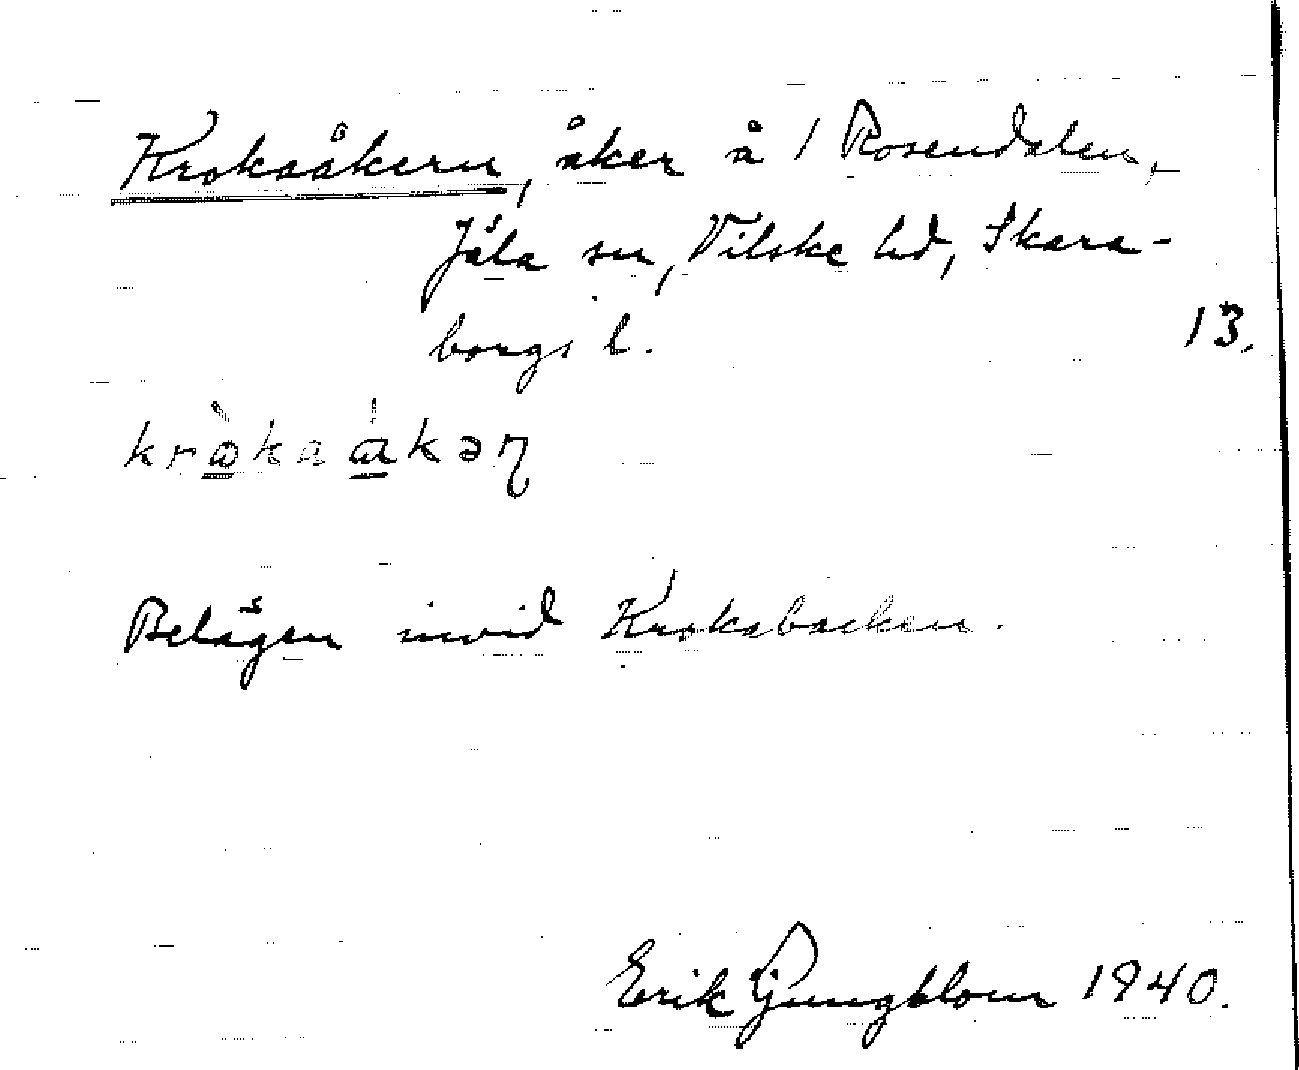 Krokaåkern, åker å 1 Rosendalen,
Jäla sn, Vilske hd, Skara-
borgs l.
13.
kròkaákəɳ
Belägen invid Krokabacken.
Erik Ljungblom 1940.